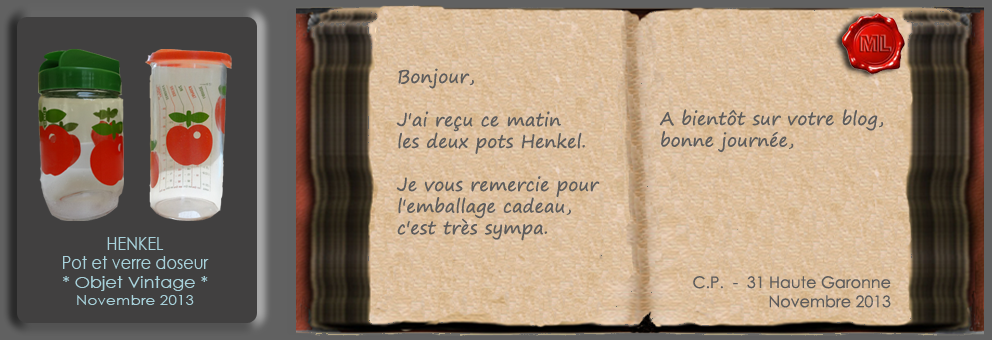 HENKEL
Pot et verre doseur
* Objet Vintage *
Novembre 2013
Bonjour,
J'ai reçu ce matin
les deux pots Henkel.
Je vous remercie pour
l'emballage cadeau,
c'est très sympa.
ML
A bientôt sur votre blog,
bonne journée,
C.P. - 31 Haute Garonne
Novembre 2013